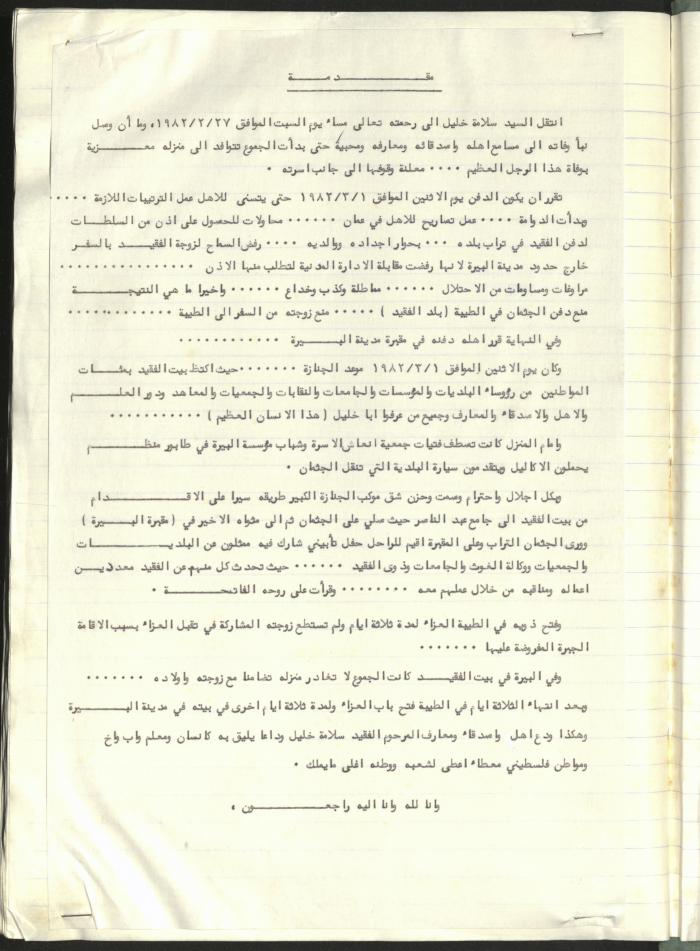 مقدمة
انتقل السيد سلامة خليل الى رحمته تعالى مساء يوم السبت الموافق ١٩٨٢/٢/٢٧، وما أن وصل
نبأ وفاته الى مسامع اهله واصدقائه ومعارفه ومحبيه حتى بدأت الجموع تتوافد الى منزله معزية
بوفاة هذا الرجل العظيم ٠٠٠٠ معلنة وقوفها الى جانب اسرته ٠
تقرر ان يكون الدفن يوم الاثنين الموافق ١٩٨٢/٣/١ حتى يتسنى للاهل عمل الترتيبات اللازمة ٠٠٠٠٠
وبدأت الدوامة ٠٠٠٠ عمل تصاريح للاهل في عمان ٠٠٠٠٠٠ محاولات للحصول على اذن من السلطات
لدفن الفقيد في تراب بلده ٠٠٠ بجوار اجداده ووالديه ٠٠٠٠ رفض السماح لزوجة الفقيد بالسفر
خارج حدود مدينة البيرة لانها رفضت مقابلة الادارة المدنية لتطلب منها الاذن ٠٠٠٠٠٠٠٠٠٠٠٠٠٠٠٠
مراوغات ومساومات من الاحتلال ٠٠٠٠٠٠ مماطلة وكذب وخداع ٠٠٠٠٠٠ واخيرا ما هي النتيجة
منع دفن الجثمان في الطيبة (بلد الفقيد ) ٠٠٠٠٠ منع زوجته من السفر الى الطيبة ٠٠٠٠٠٠٠٠٠٠٠٠
وفي النهاية قرر اهله دفنه في مقبرة مدينة البيرة ٠٠٠٠٠٠٠٠٠٠٠٠
وكان يوم الاثنين الموافق ١٩٨٢/٣/١ موعد الجنازة ٠٠٠٠٠٠٠ حيث اكتظ بيت الفقيد بمئات
المواطنين من رؤوساء البلديات والمؤسسات والجامعات والنقابات والجمعيات والمعاهد ودور العلم
والاهل والاصدقاء والمعارف وجميع من عرفوا ابا خليل ( هذا الانسان العظيم ) ٠٠٠٠٠٠٠٠٠٠٠
وامام المنزل كانت تصطف فتيات جمعية انعاش الاسرة وشباب مؤسسة البيرة في طابور منظم
يحملون الاكاليل ويتقدمون سيارة البلدية التي تنقل الجثمان ٠
وبكل اجلال واحترام وصمت وحزن شق موكب الجنازة الكبير طريقه سيرا على الاقدام
من بيت الفقيد الى جامع عبد الناصر حيث صلي على الجثمان ثم الى مثواه الاخير في ( مقبرة البيرة )
وورى الجثمان التراب وعلى المقبرة اقيم للراحل حفل تأبيني شارك فيه ممثلون عن البلديات
والجمعيات ووكالة الغوث والجامعات وذوي الفقيد ٠٠٠٠٠٠ حيث تحدث كل منهم عن الفقيد معددين
اعماله ومناقبه من خلال عملهم معه ٠٠٠٠٠٠٠٠ وقرأت على روحه الفاتحة ٠
وفتح ذويه في الطيبة العزاء لمدة ثلاثة ايام ولم تستطع زوجته المشاركة في تقبل العزاء بسبب الاقامة
الجبرة المفروضة عليها ٠٠٠٠٠٠٠
وفي البيرة في بيت الفقيد كانت الجموع لا تغادر منزله تضامنا مع زوجته واولاده ٠٠٠٠٠٠٠
وبعد انتهاء الثلاثة ايام في الطيبة فتح باب العزاء ولمدة ثلاثة ايام اخرى في بيته في مدينة البيرة
وهكذا ودع اهل واصدقاء ومعارف المرحوم الفقيد سلامة خليل وداعا يليق به كانسان ومعلم واب واخ
ومواطن فلسطيني معطاء اعطى لشعبه ووطنه اغلى مايملك ٠
وانا لله وانا اليه راجعون ،